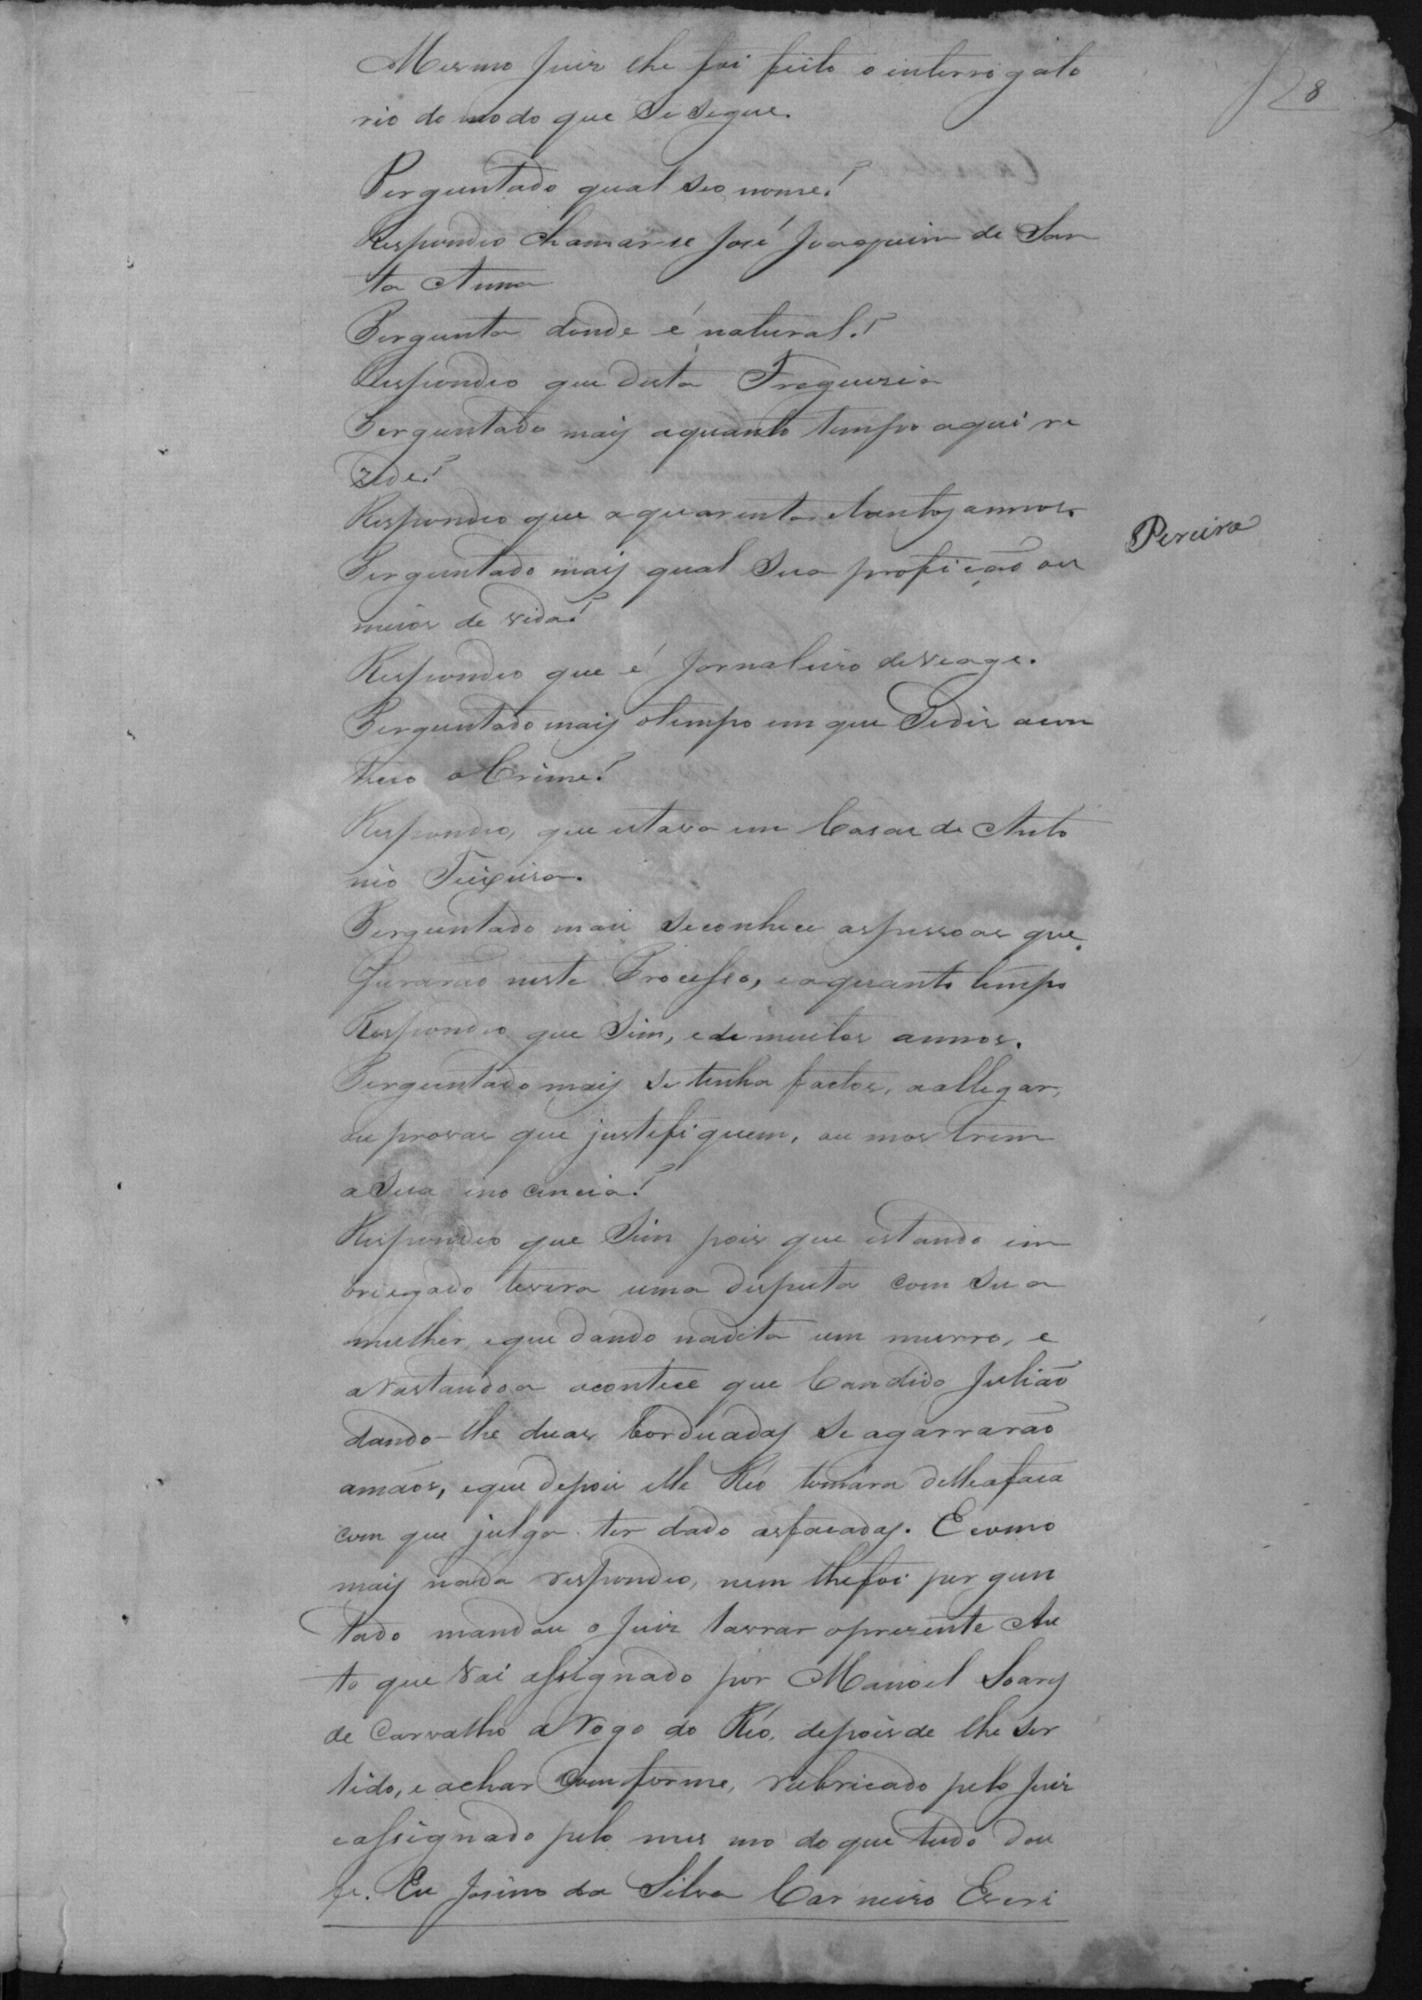 28
Mesmo Juiz lhe foi feito o interrogato
rio do modo que Se Segue.
Perguntado qual seo nome?
Respondeo chamar-se José Joaquim de San
ta Anna
Pergunta donde é natural?
Respondeo que desta Freguezia
Perguntado mais aquanto tempo aqui re
zide?
Respondeo que a quarenta etantos annos.
Pereira
Perguntado mais qual Sua profição ou
meios de vida?
Respondeo que é Jornaleiro
Perguntado mais otempo em que Sediz acon
teceo o Crime?
Respondeo, que estava em Casas de Anto
nio Teixeira.
Perguntado mais seconhece aspessoas que
Jurarão neste Processo, eaquanto tempo
Respondeo que Sim, ede muitos annos.
Perguntado mais Se tenha factos, aallegar,
ou provas que justefiquem, ou mostrem
aSua inocencia?
Respondeo que Sim pois que estando im
briegado tevera uma disputa com Sua
mulher, eque dando nadita um murro, e
avastandoa acontece que Candido Julião
dando-lhe duas borduadas Se agarrarão
amãos, eque depois elle Réo tomára delleafaca
com que julga ter dado asfacadas. Ecomo
mais nada respondeo, nem lhefoi pergun
tado mandou o Juiz lavrar oprezente Au
to que vai assignado por Manoel Soares
de Carvalho a Rogo do Réo, depois de lhe Ser
lido, e achar Comforme, rubricado pelo Juiz
eassignado pelo mesmo do que tudo dou
fé. Eu Josino da Silva Carneiro Escri